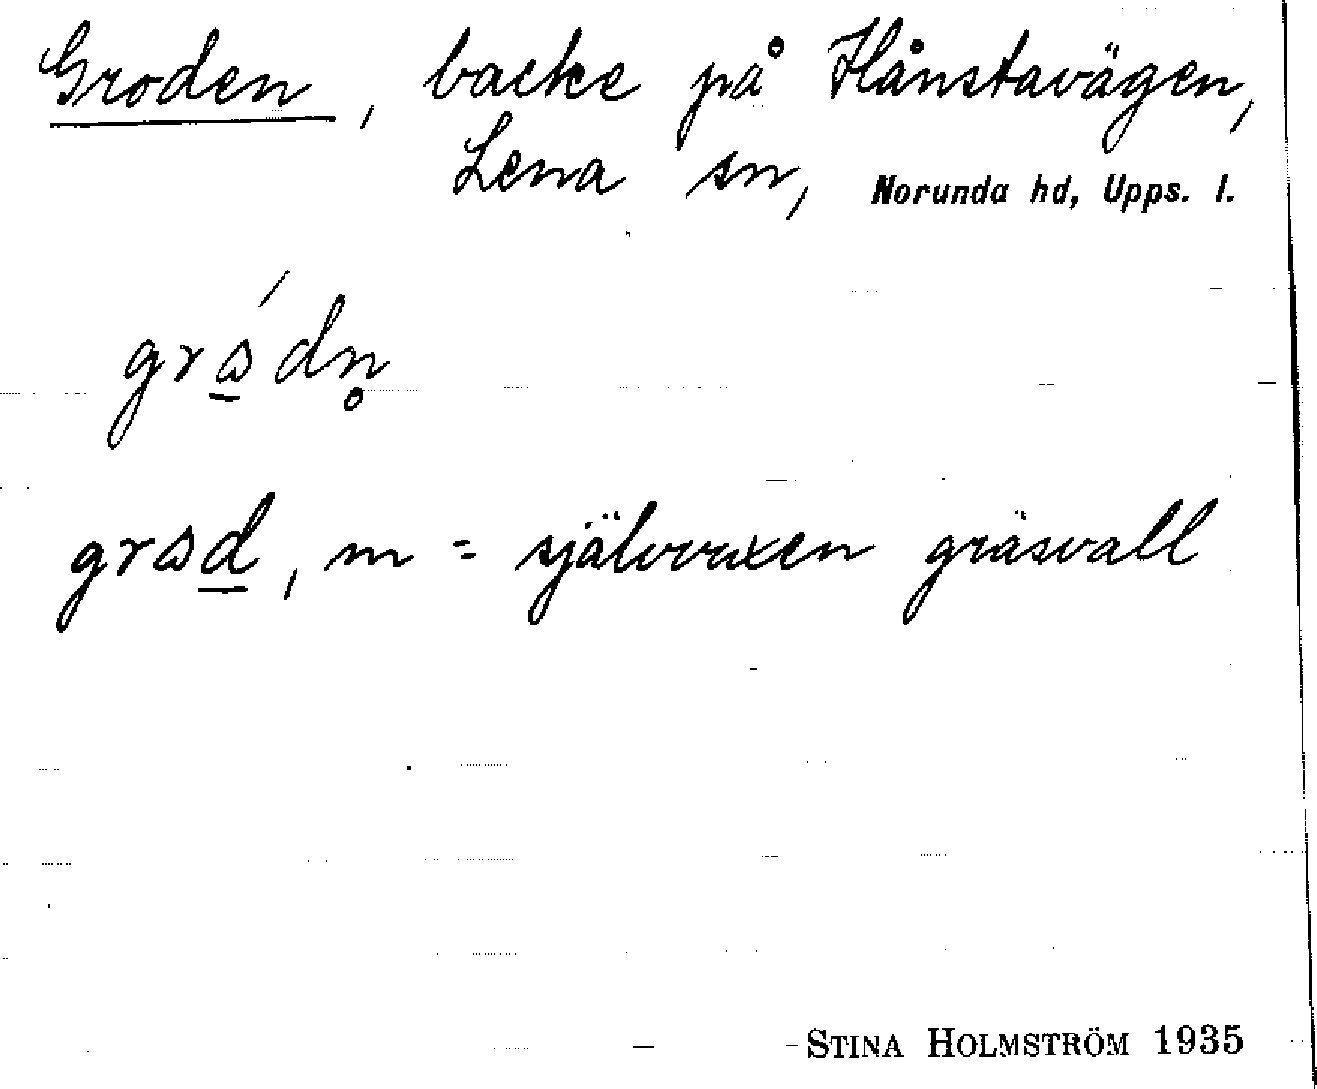 Groden, backe på Hånstavägen,
Lena sn, Norunda hd, Upps. l.
grǝ́dn̥
grǝd, m = självvuxen gräsvall
STINA HOLMSTRÖM 1935